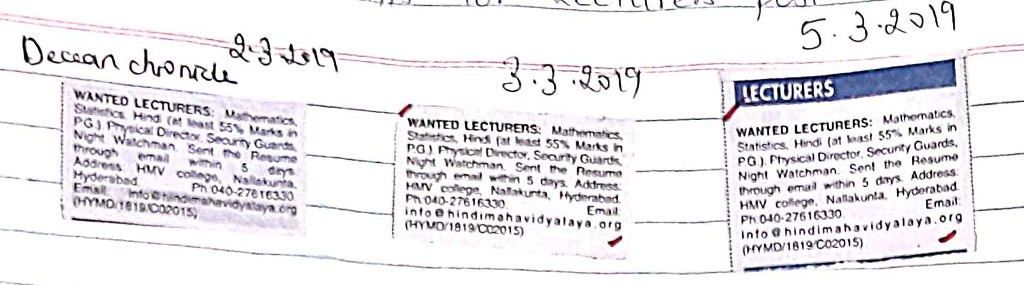 for Lecturers post
Deccan chronicle
2.3.2019
WANTED LECTURERS: Mathematics,
Statistics, Hindi (at least 55% Marks in
PG.) Physical Director, Security Guards,
Night Watchman. Sent the Resume
through email within 5 days.
Address: HMV college, Nallakunta,
Hyderabad. Ph:040-27616330.
Email: info@hindimahavidyalaya.org
(HYMD/1819/C02015)
3.3.2019
WANTED LECTURERS: Mathematics,
Statistics, Hindi (at least 55% Marks in
PG.) Physical Director, Security Guards,
Night Watchman. Sent the Resume
through email within 5 days. Address:
HMV college, Nallakunta, Hyderabad.
Ph:040-27616330. Email:
info@hindimahavidyalaya.org
(HYMD/1819/C02015)
5.3.2019
LECTURERS
WANTED LECTURERS: Mathematics,
Statistics, Hindi (at least 55% Marks in
PG.) Physical Director, Security Guards,
Night Watchman. Sent the Resume
through email within 5 days. Address:
HMV college, Nallakunta, Hyderabad.
Ph:040-27616330. Email:
info@hindimahavidyalaya.org
(HYMD/1819/C02015)